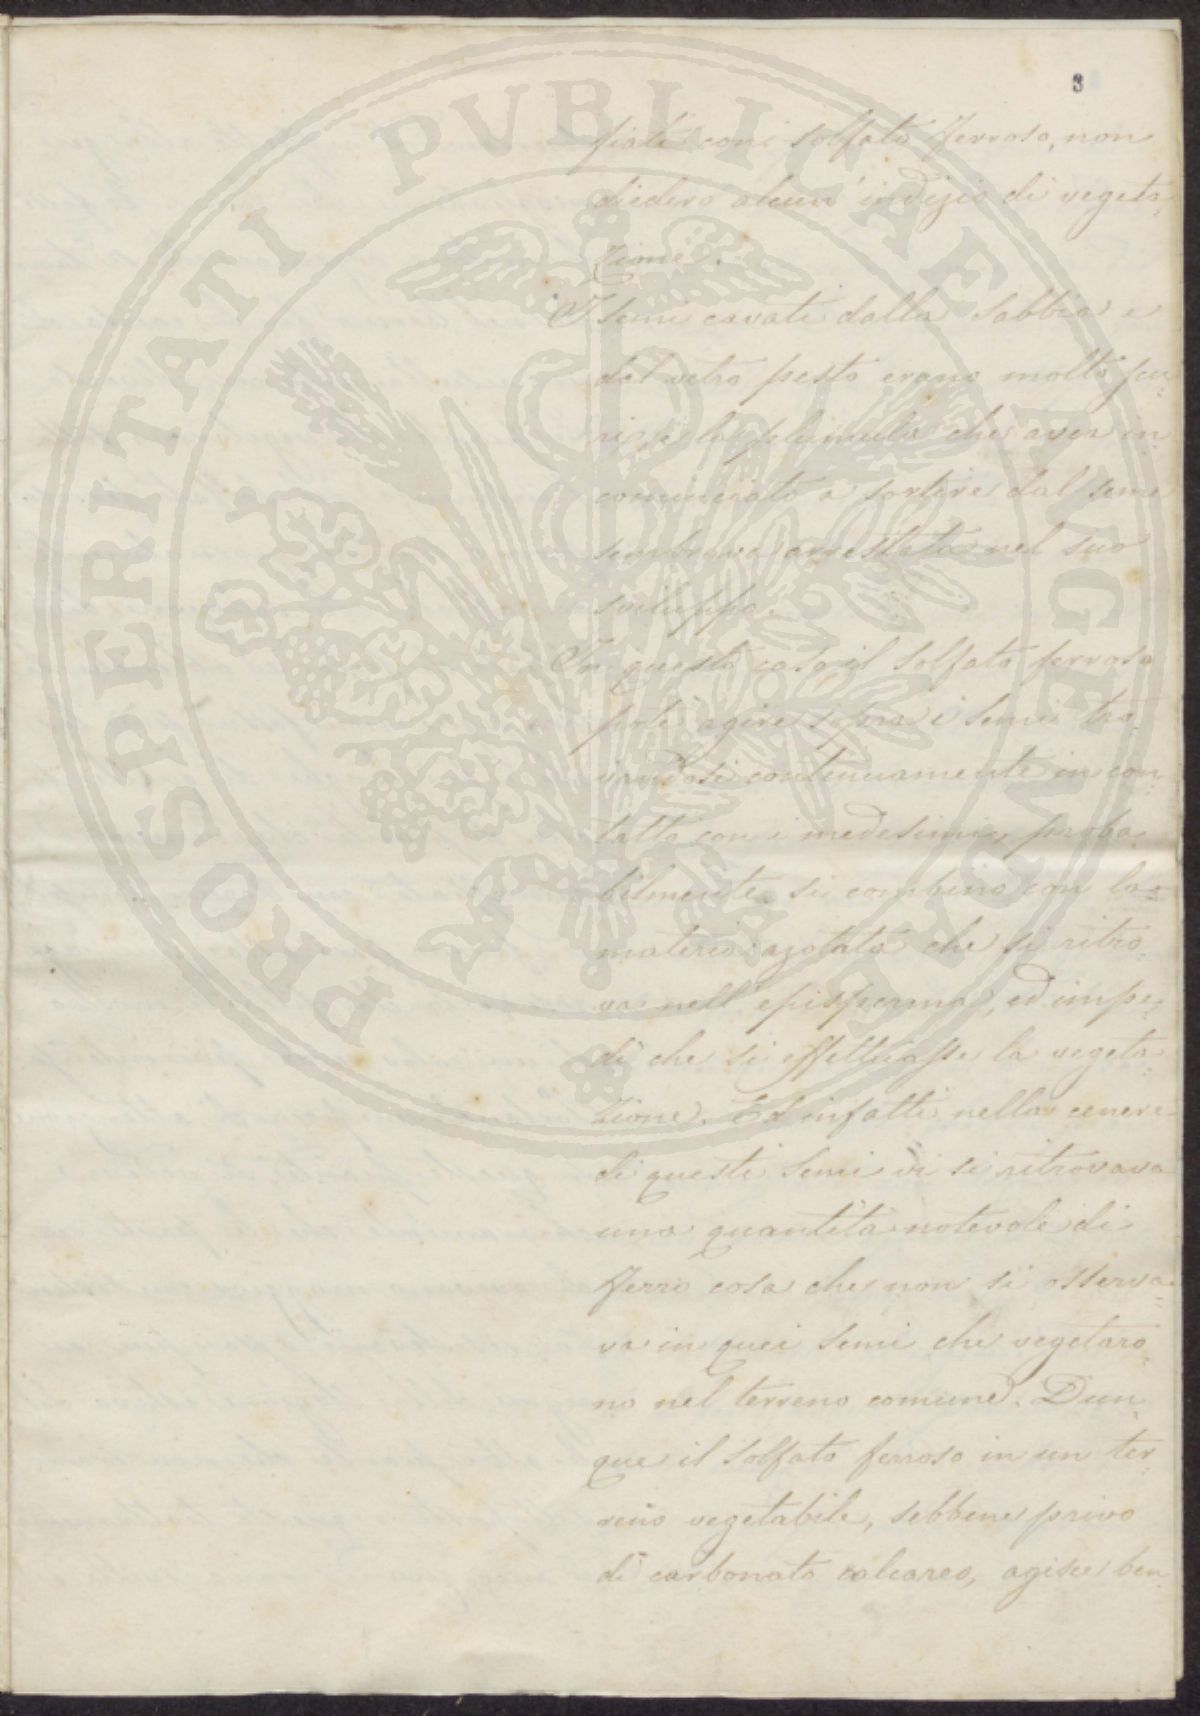 3
fiati con solfato ferroso, non
diedero alcun' indizio di vegeta-
zione.
I semi cavati dalla sabbia e
dal vetro pesto erano molto fu-
ri, e la plumula che avea in-
cominciato a sortire dal seme
sembrava arrestata nel suo
sviluppo.
In questo caso il solfato ferroso
potè agire sopra i semi tro-
vandosi continuamente in con-
tatto con i medesimi, proba-
bilmente si combinò con la
materia azotata che si ritro-
va nell' episperma, ed impe-
dì che si effettuasse la vegeta-
zione. Ed infatti nella cenere
di questi semi vi si ritrovava
una quantità notevole di
ferro cosa che non si osserva-
va in quei semi che vegetaro-
no nel terreno comune. Dun-
que il solfato ferroso in un ter-
reno vegetabile, sebbene privo
di carbonato calcareo, agisce ben
PROSPERITATI PVBLICAE AVGENDAE